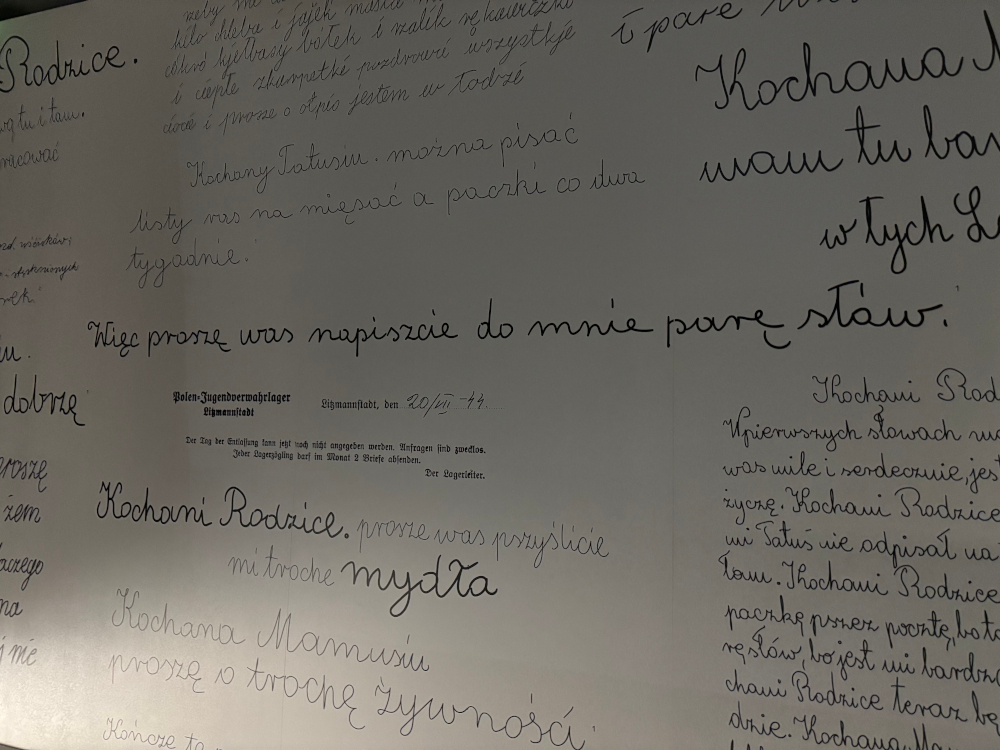 Rodzice.
wą tu i tam.
racować
dobrzę
proszę
żem
laczego
na
nie
kilo chleba i jajek
i ciepłe
i prosze o otpis jestem w Łodzi
Kochany Tatusiu. można pisać
listy ras na mięsać a paczki co dwa
tygadnie.
i parę
Kochana
mam tu bar
w tych
Więc proszę was napiszcie do mnie parę stów.
Polen-Jugendverwahrlager
Litzmannstadt
Litzmannstadt, den 20/VII -44.
Der Tag der Entlassung kann jetzt noch nicht angegeben werden. Anfragen sind zwecklos.
Jeder Lagerzögling darf im Monat 2 Briefe absenden.
Der Lagerleiter.
Kochani Rodzice. prosze was pszyślicie
mi troche mydła
Kochana Mamusiu
proszę o trochę żywnośći
Kończe
Kochani Rod
Wpierwszych słowach
was miłe i serdecznie, jes
życzę. Kochani Rodzice
mi Tatuś nie odpisał na
tam. Kochani Rodzice
paczkę przez pocztę, bo to
ręstów, bo jest mi bardzo
chani Rodzice teraz bę
dzie. Kochana Ma